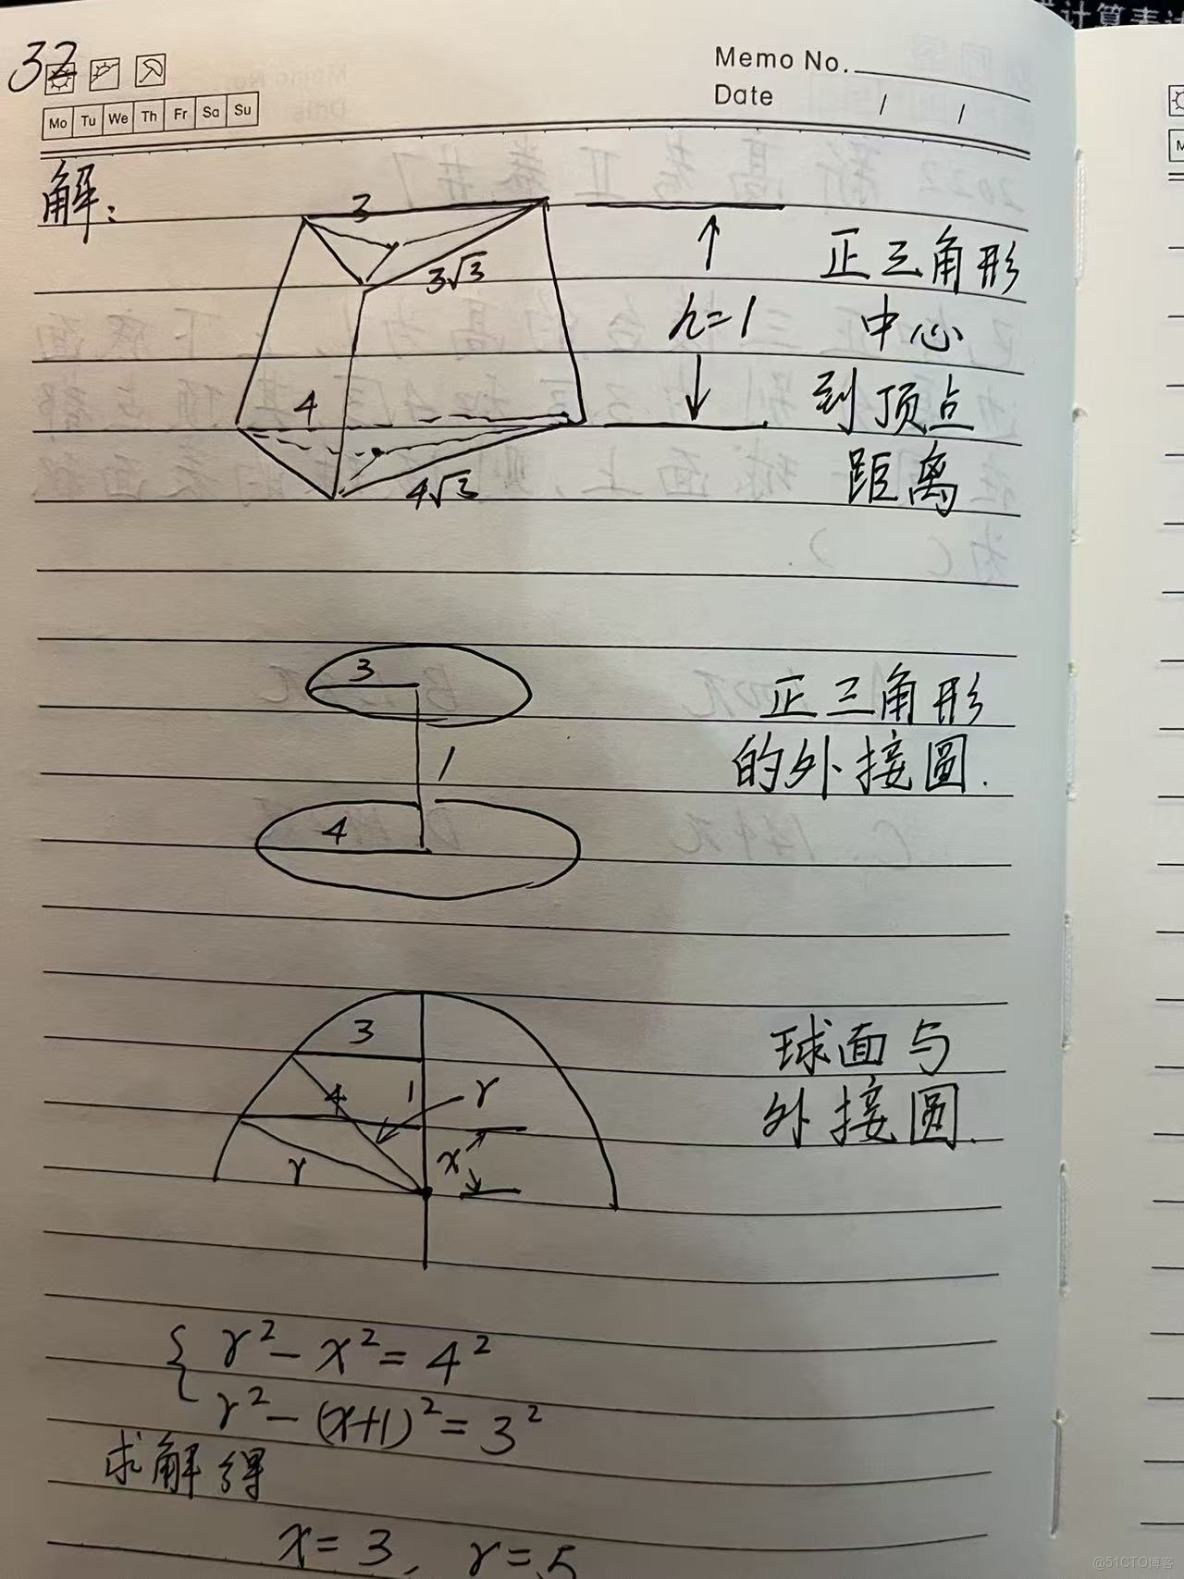 计算表达
32
Memo No.
Date / /
Mo Tu We Th Fr Sa Su
解：
3
3√3
h=1
4
4√3
正三角形
中心
到顶点
距离
3
1
4
正三角形
的外接圆.
3
4
1
r
x
r
球面与
外接圆.
{ r²-x²=4²
r²-(x+1)²=3²
求解得
x=3, r=5
@51CTO博客